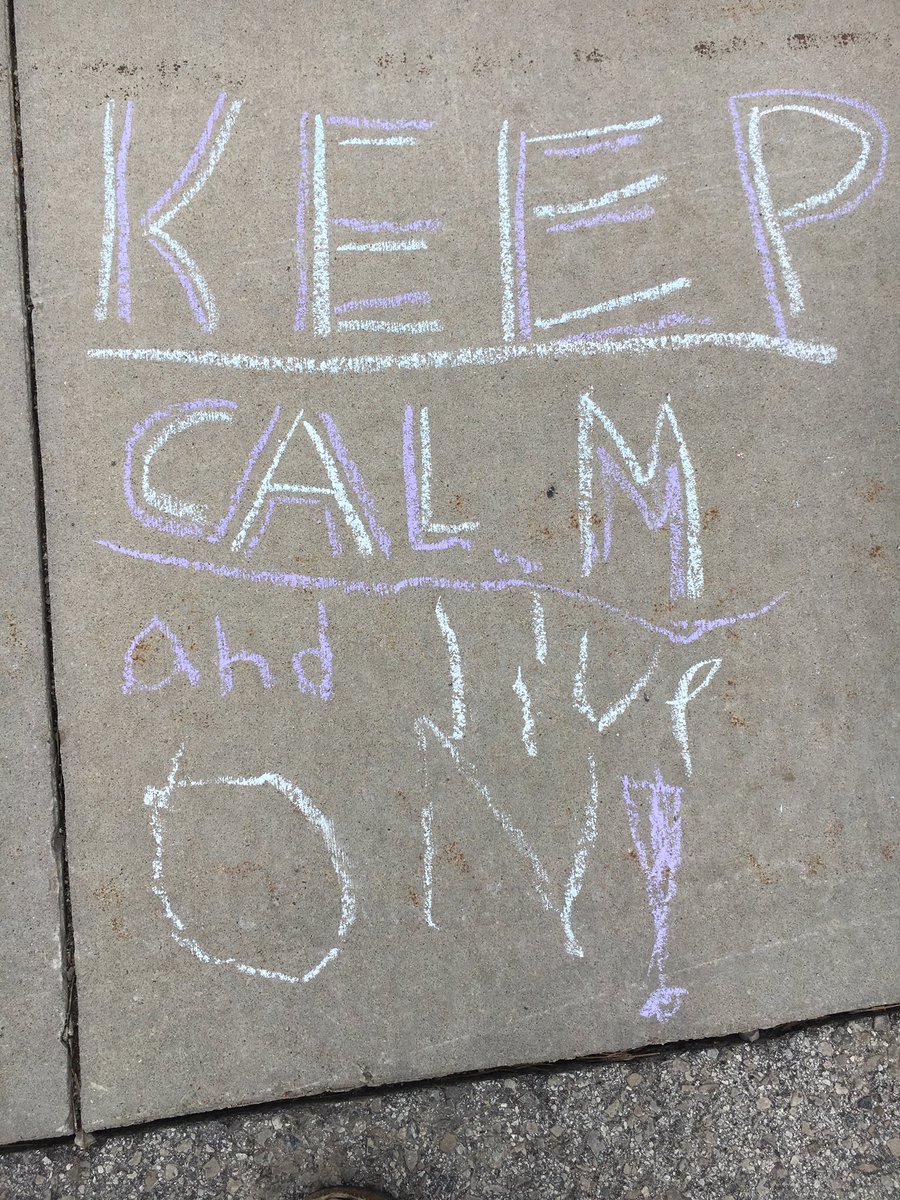 KEEP
CALM
and live
ON!